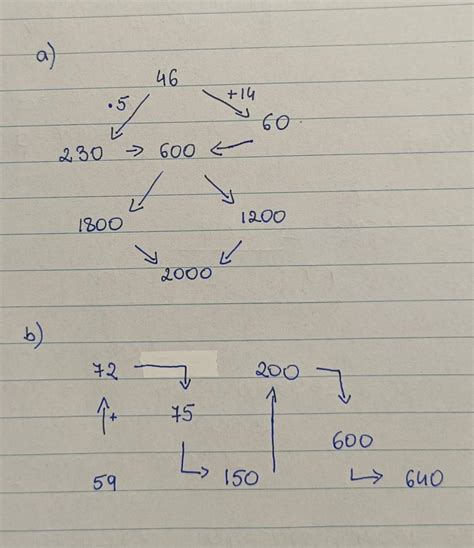 a)
46
·5 +14
60
230 → 600 ←
1800 1200
2000
b)
72 200
+ 75
600
59 150 640